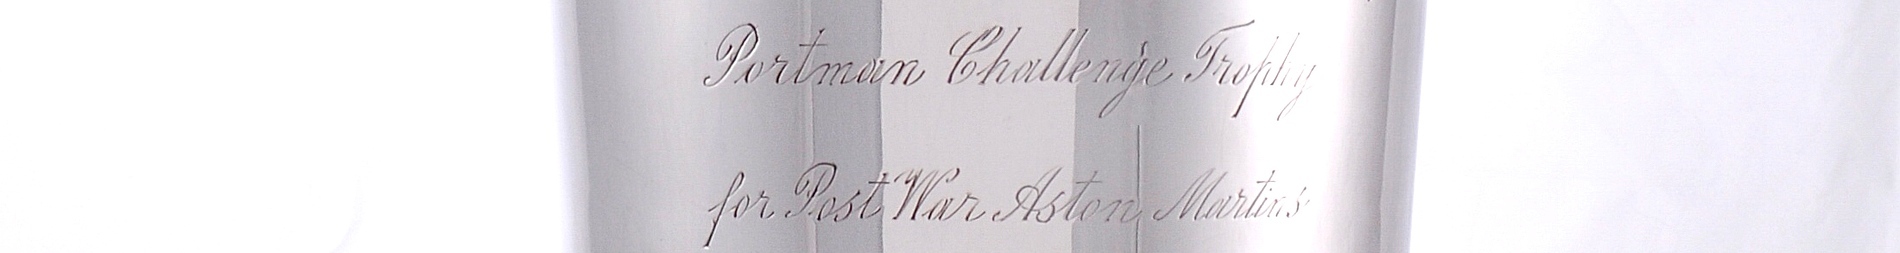 Portman Challenge Trophy
for Post War Aston Martins